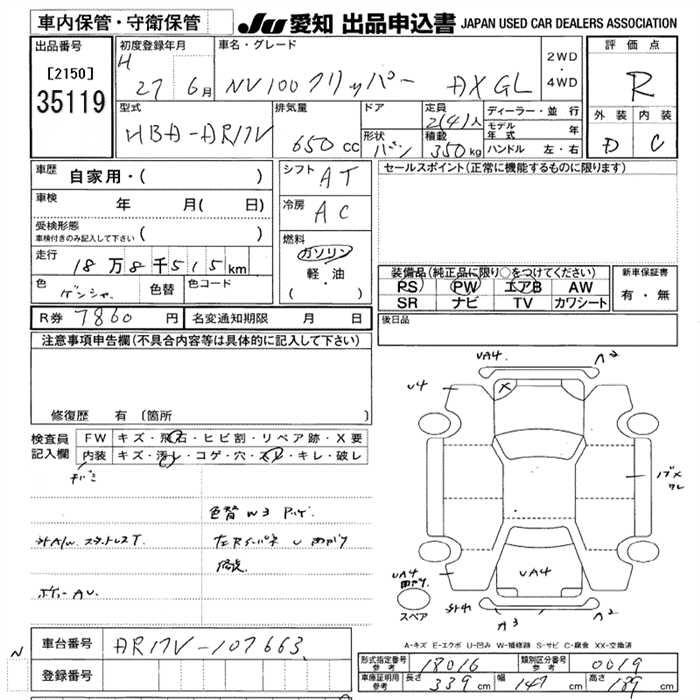 車内保管・守衛保管
JU 愛知 出品申込書 JAPAN USED CAR DEALERS ASSOCIATION
出品番号
[2150]
35119
初度登録年月
H 27 年 6月
車名・グレード
NV100クリッパー DX GL
2WD
・
4WD
評価点
R
外装 内装
D C
型式
HBD-DR17V
排気量
650 cc
ドア
形状
バン
定員
2(4)人
積載
350kg
ディーラー・並行
モデル年式 年
ハンドル 左・右
車歴
自家用・( )
車検
年 月( 日)
受検形態
車検付きのみ記入して下さい ( )
走行
18万8千515km
色 色替 色コード
シフト AT
冷房 AC
燃料
ガソリン
軽・油
( ・ )
セールスポイント(正常に機能するものに限ります)
装備品(純正品に限り○をつけてください)
PS PW エアB AW
SR ナビ TV カワシート
新車保証書
有・無
後日品
R券 7860 円 名変通知期限 月 日
注意事項申告欄(不具合内容等は具体的に記入して下さい)
修復歴 有 〔箇所
検査員
記入欄
FW キズ・飛石・ヒビ割・リペア跡・X要
内装 キズ・汚れ・コゲ・穴・スレ・キレ・破レ
色替 W3
スタットレスT.
ボデー AU
UA4. A2
U4
X
UA4
UA4
スペア
A3 A2
A-キズ E-エクボ U-凹み W-補修跡 S-サビ C-腐食 XX-交換済
N
車台番号 DR17V-107663
登録番号
形式指定番号
参考
18016
類別区分番号
参考
0019
車庫証明用
参考
長さ 339cm 幅 147cm 高さ 189cm